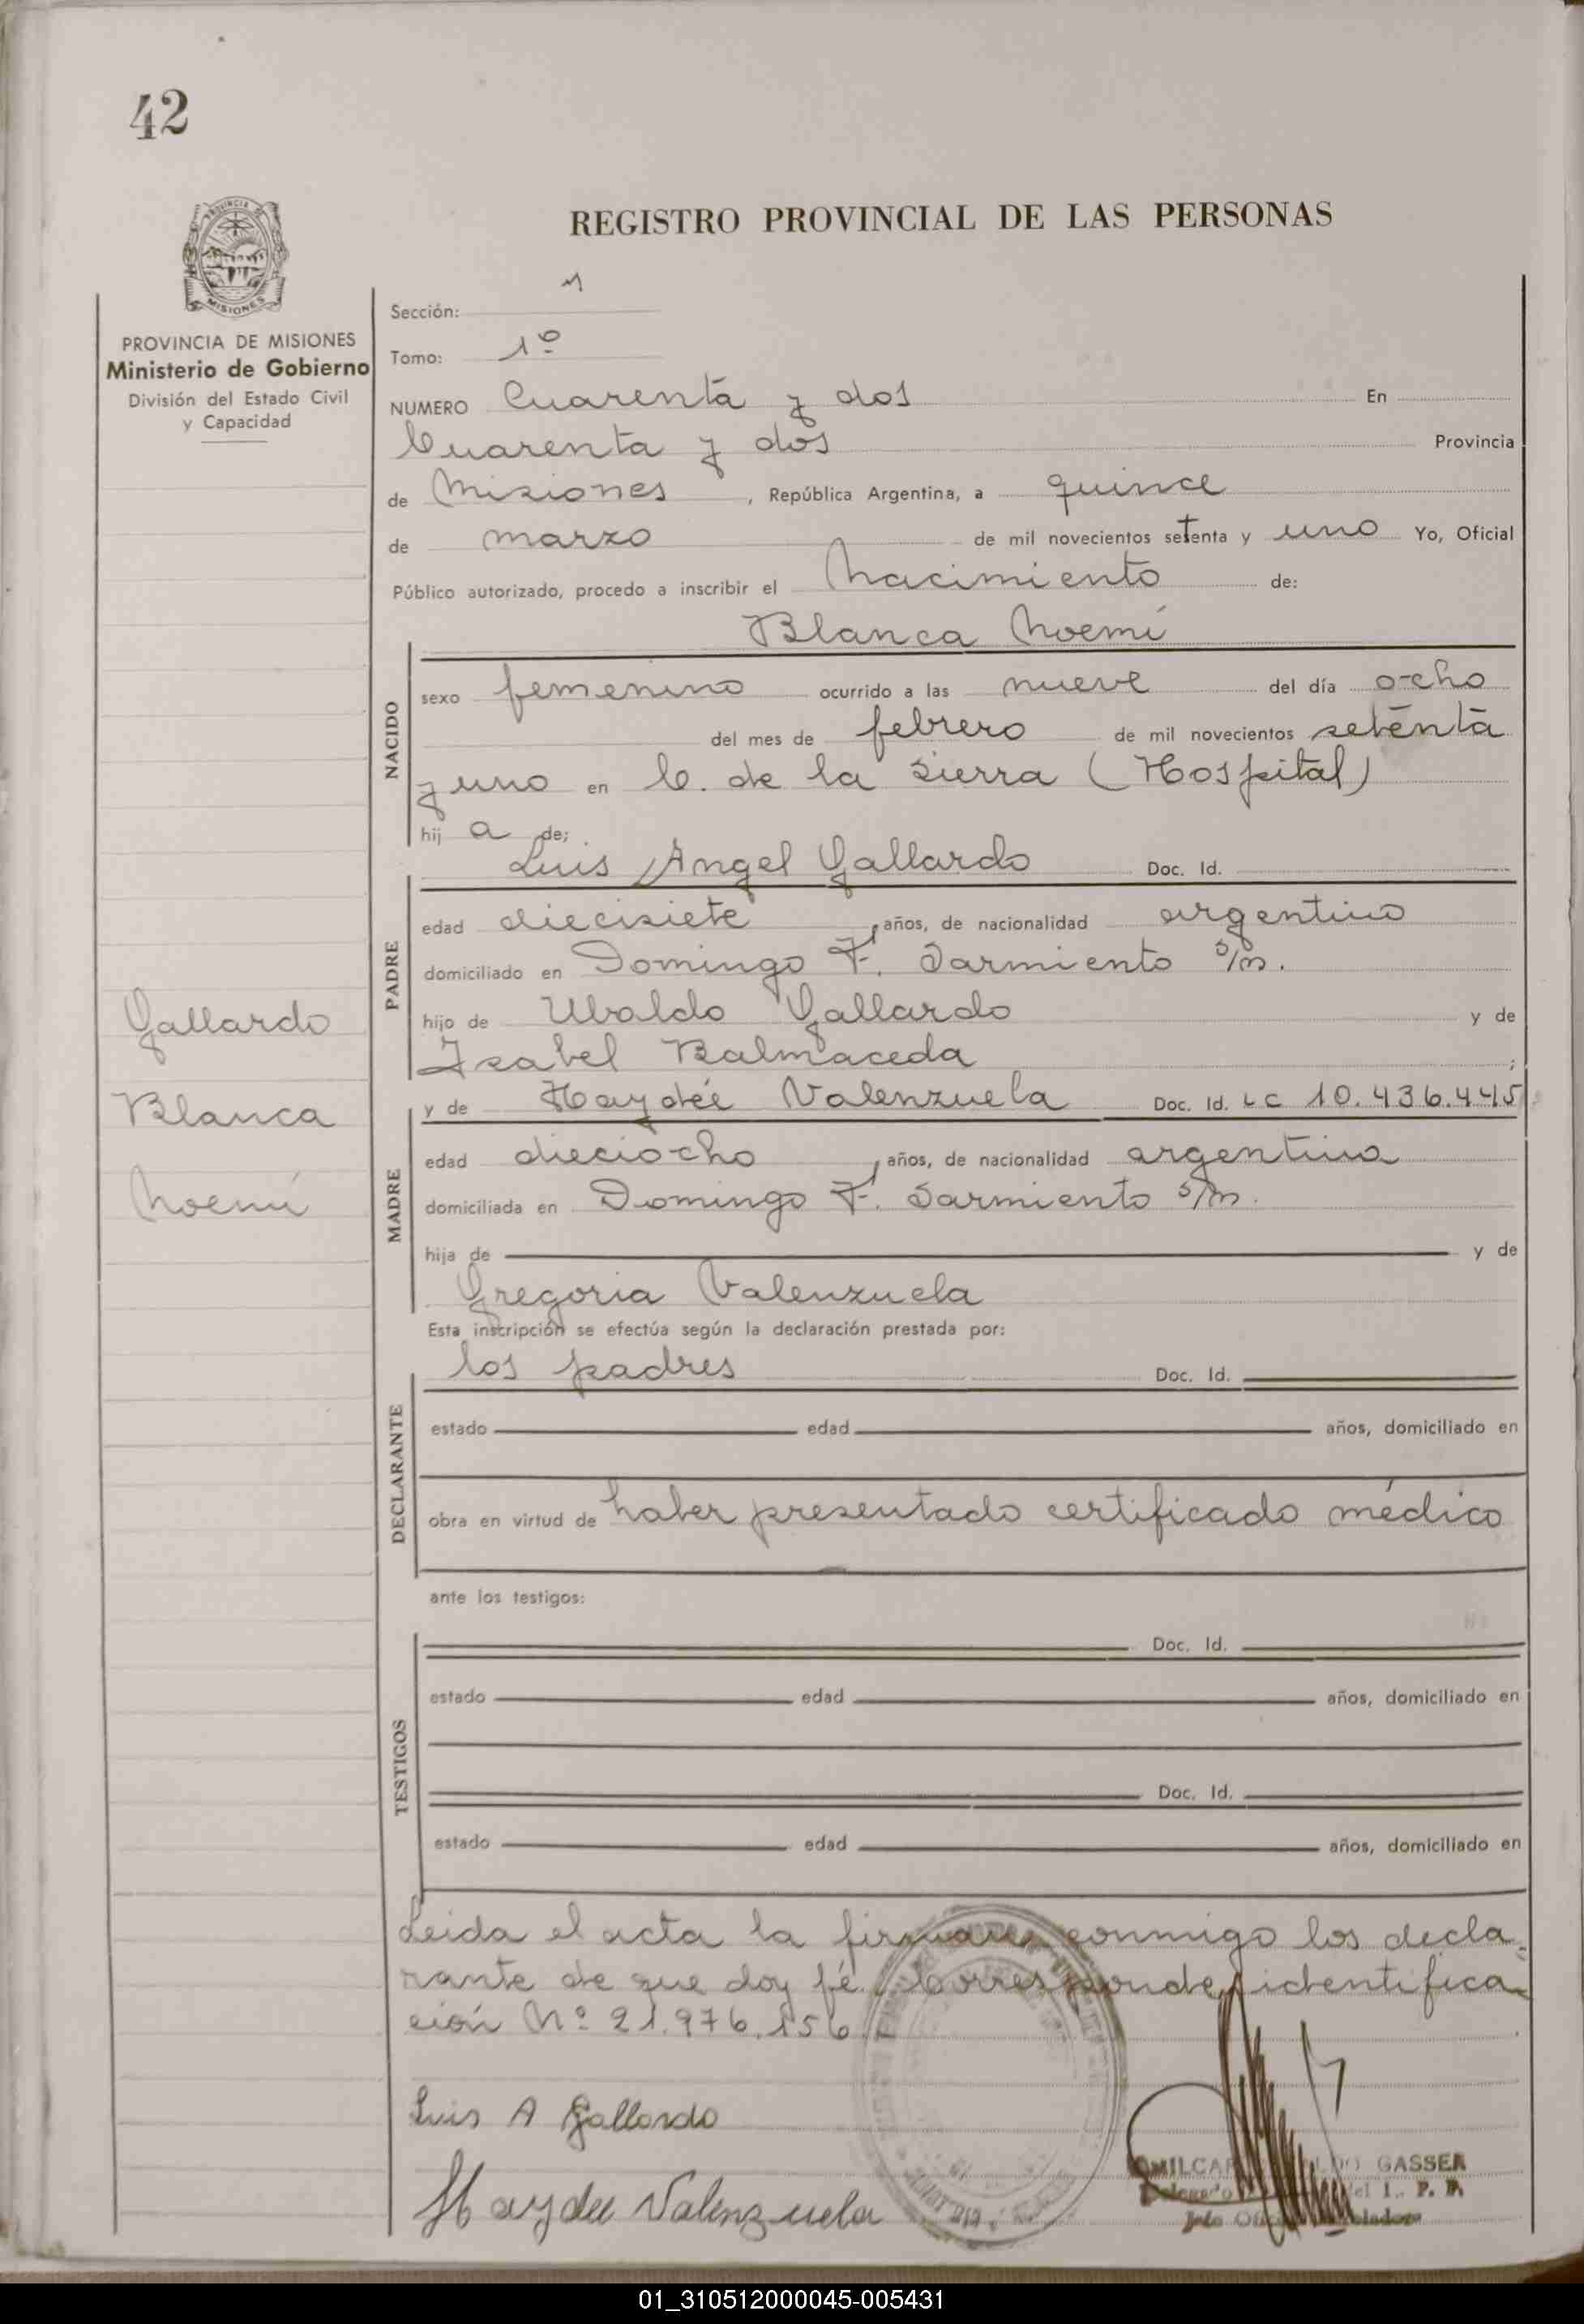 42
PROVINCIA DE MISIONES
Ministerio de Gobierno
División del Estado Civil
y Capacidad
REGISTRO PROVINCIAL DE LAS PERSONAS
Sección: 1
Tomo: 1º
NUMERO Cuarenta y dos En
Cuarenta y dos Provincia
de Misiones, República Argentina, a quince
de marzo de mil novecientos setenta y uno Yo, Oficial
Público autorizado, procedo a inscribir el Nacimiento de:
Blanca Noemí
NACIDO
sexo femenino ocurrido a las nueve del día ocho
del mes de febrero de mil novecientos setenta
y uno en C. de la Sierra (Hospital)
hij a de;
Luis Angel Gallardo Doc. Id.
PADRE
edad diecisiete años, de nacionalidad argentino
domiciliado en Domingo F. Sarmiento s/n.
hijo de Ubaldo Gallardo y de
Isabel Balmaceda ;
Gallardo
Blanca
Noemí
y de Haydée Valenzuela Doc. Id. LC 10.436.445
MADRE
edad dieciocho, años, de nacionalidad argentina
domiciliada en Domingo F. Sarmiento s/n.
hija de y de
Gregoria Valenzuela
Esta inscripción se efectúa según la declaración prestada por:
los padres Doc. Id.
DECLARANTE
estado edad años, domiciliado en
obra en virtud de haber presentado certificado médico
ante los testigos:
TESTIGOS
Doc. Id.
estado edad años, domiciliado en
Doc. Id.
estado edad años, domiciliado en
Leida el acta la firman conmigo los decla-
rante de que doy fé. Corresponde identifica-
ción Nº 21.976.156
Luis A Gallardo
Haydee Valenzuela
GASSER
01_310512000045-005431